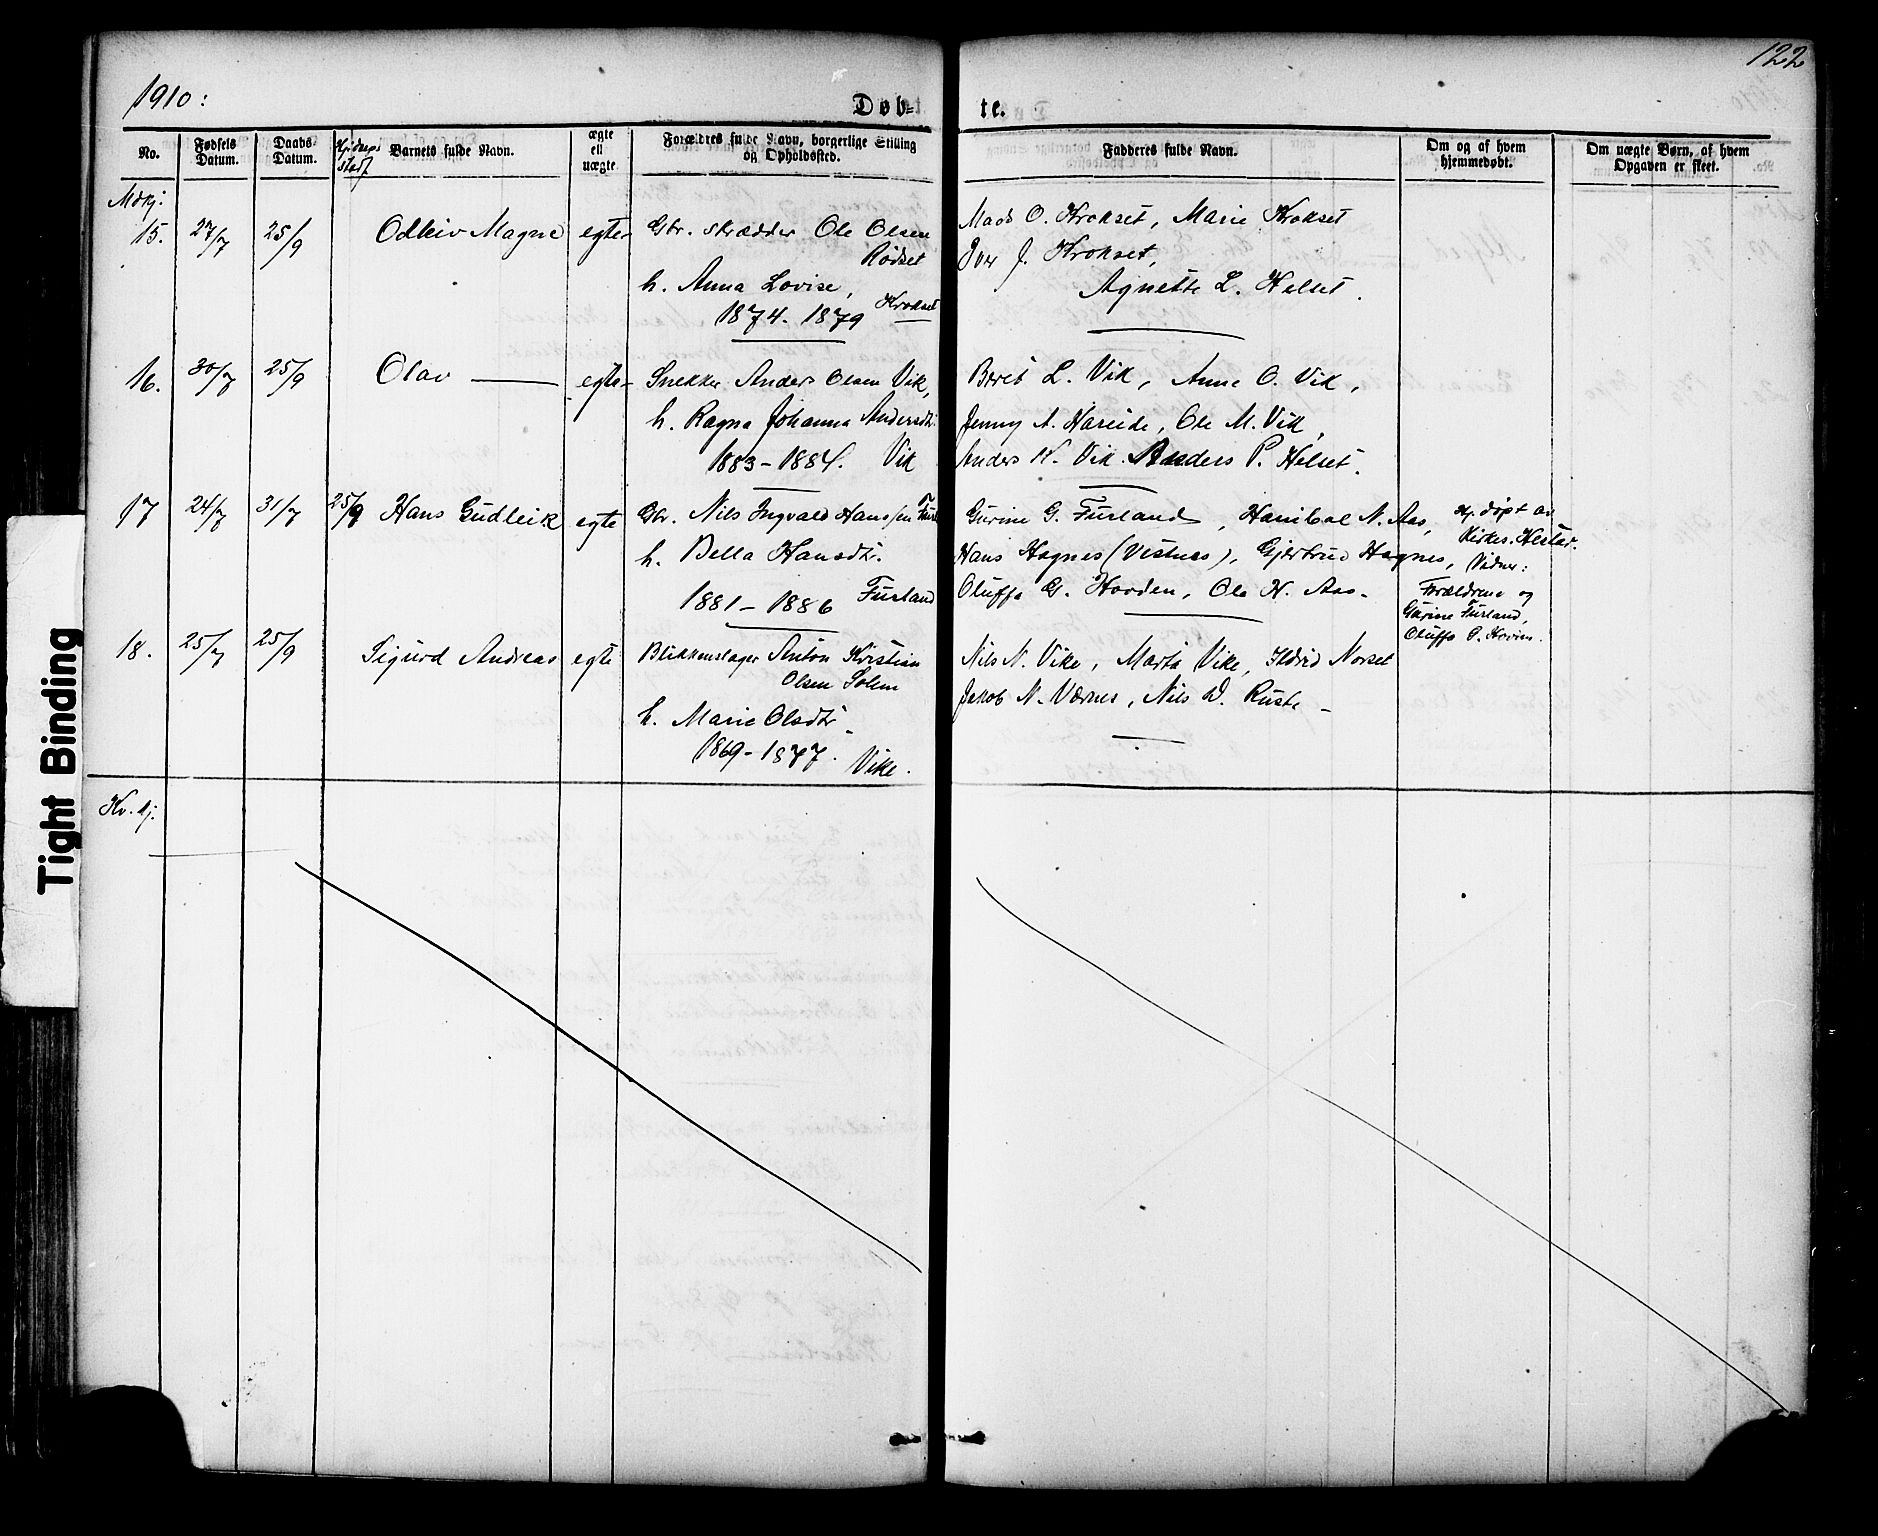 122
1910:
Døb-
te.
No.
Fødsels Datum.
Daabs Datum.
Barnets fulde Navn.
ægte ell uægte.
Forældres fulde Navn, borgerlige Stilling og Opholdssted.
Fadderes fulde Navn.
Om og af hvem hjemmedøbt.
Om uægte Børn, af hvem Opgaven er skeet.
Mdkj:
15. 27/7 25/9 Odleiv Magne egte Gbr. skrædder Ole Olsen
Rødset
h. Anna Lovise,
1874. 1879 Krokset
Mads O. Krokset, Marie Krokset
Iver J. Krokset,
Agnette L. Helset.
16. 30/7 25/9 Olav egte Snekker Anders Olsen Vik,
h. Ragna Johanna Andersdtr.
1883-1884. Vik
Berit L. Vik, Anne O. Vik,
Jenny A. Hareide, Ole M. Vik,
Anders K. Vik. Anders P. Helset.
17 24/7 31/7 25/9 Hans Gudleik egte Gbr. Nils Ingvald Hanssen
h. Bella Hansdtr.
1881-1886 Furland
Gurine G. Furland, Hanibal N. Aas,
Hans Hagnes (Vestnes), Gjertrud Hagnes,
Oluffa G. Hovden, Ole H. Aas.
Hj. døpt av
Kirkes. Helset.
Vidner:
Forældrene og
Gurine Furland,
Oluffa
18. 25/7 25/9 Sigurd Andreas egte Blikkenslager Anton Kristian
Olsen Solem
h. Marie Olsdtr.
1869-1877. Vike.
Nils N. Vike, Marta Vike, Ildrid Norset
Jakob N. Værnes, Nils D. Ruste
Kv. kj.
Tight Binding